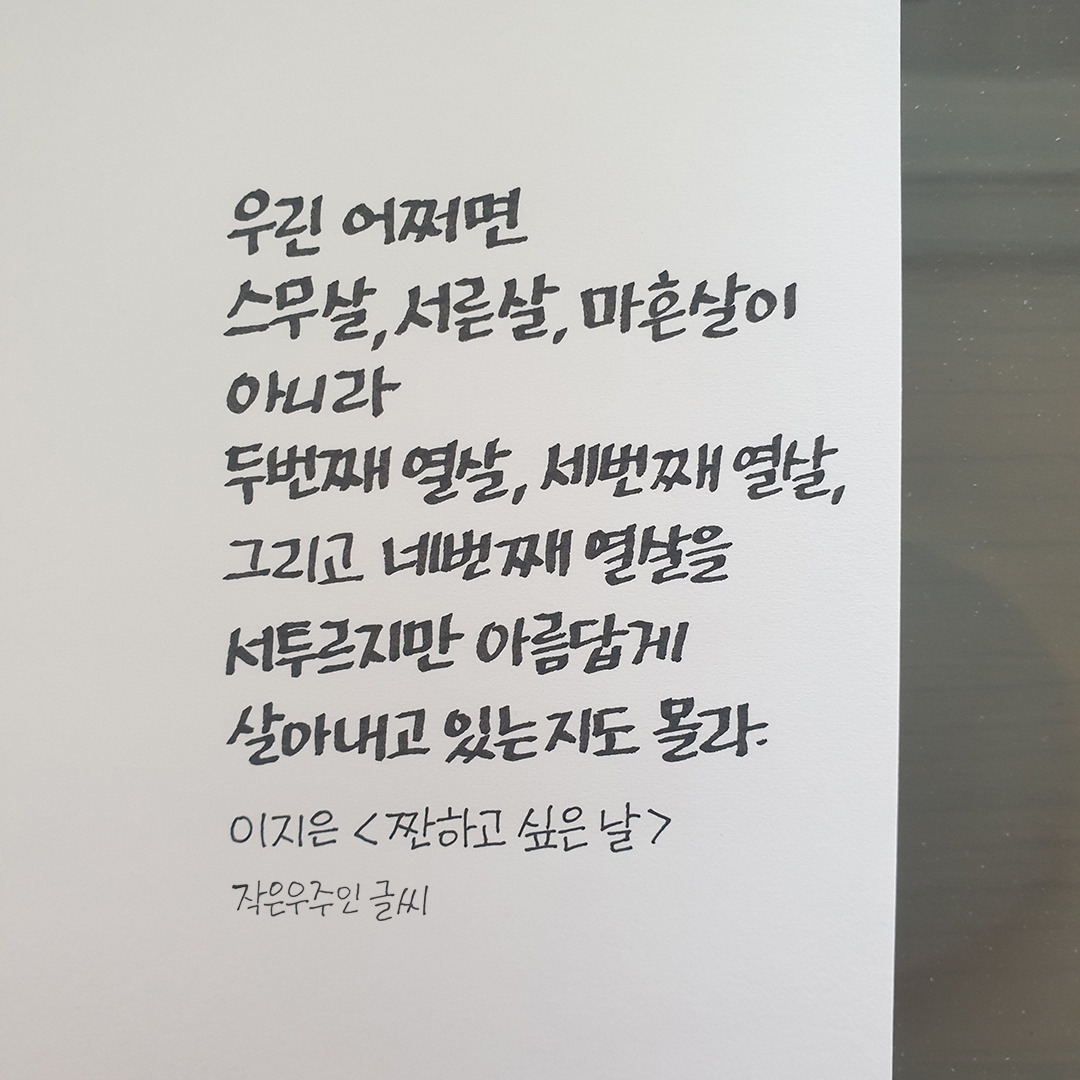 우린 어쩌면
스무살, 서른살, 마흔살이
아니라
두번째 열살, 세번째 열살,
그리고 네번째 열살을
서투르지만 아름답게
살아내고 있는지도 몰라.
이지은 <짠하고 싶은 날>
작은우주인 글씨